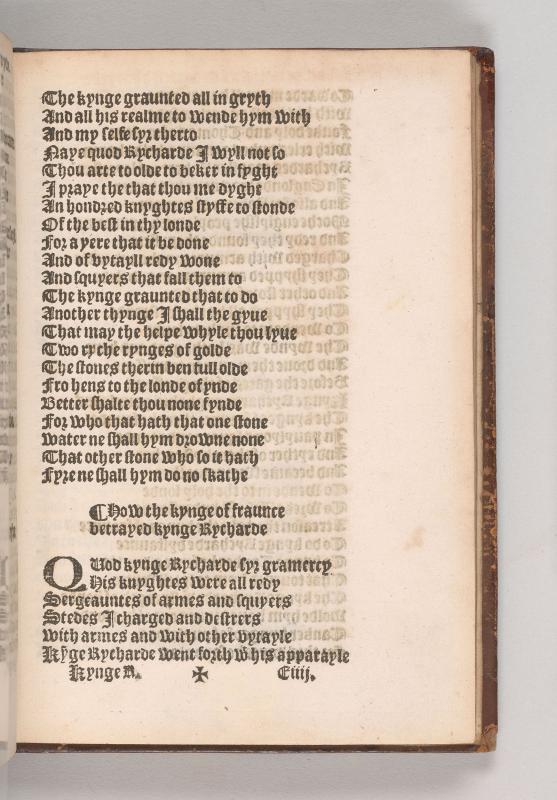 The kynge graunted all in gryth
And all his realme to wende hym with
And my selfe syr therto
Naye quod Rycharde I wyll not so
Thou arte to olde to beker in fyght
I praye the that thou me dyght
An hondred knyghtes styffe to stonde
Of the best in thy londe
For a yere that it be done
And of vytayll redy wone
And squyers that fall them to
The kynge graunted that to do
Another thynge I shall the gyue
That may the helpe whyle thou lyue
Two ryche rynges of golde
The stones therin ben full olde
Fro hens to the londe of ynde
Better shalte thou none fynde
For who that hath that one stone
Water ne shall hym drowne none
That other stone who so it hath
Fyre ne shall hym do no skathe
¶How the kynge of fraunce
betrayed kynge Rycharde
QUod kynge Rycharde syr gramercy
His knyghtes were all redy
Sergeauntes of armes and squyers
Stedes I charged and destrers
With armes and with other vytayle
Kȳge Rycharde went forth wͭ his apparayle
Kynge R. ✠ E iiij.